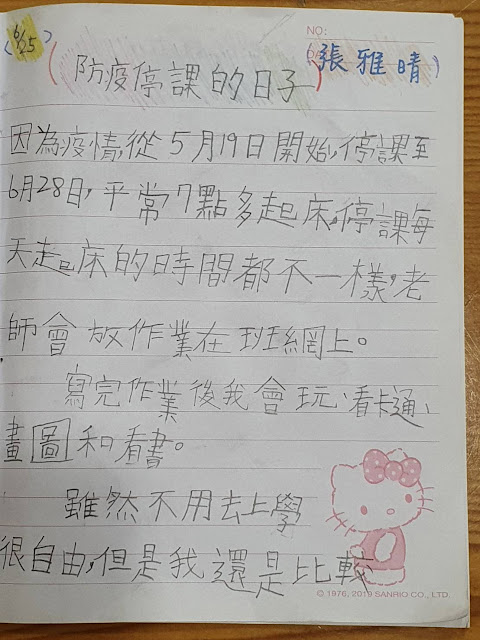 6/25
NO:
(張雅晴)
防疫停課的日子
因為疫情,從5月19日開始,停課至
6月28日,平常7點多起床,停課每
天起床的時間都不一樣,老
師會放作業在班網上。
寫完作業後我會玩、看卡通、
畫圖和看書。
雖然不用去上學
很自由,但是我還是比較
© 1976, 2019 SANRIO CO., LTD.